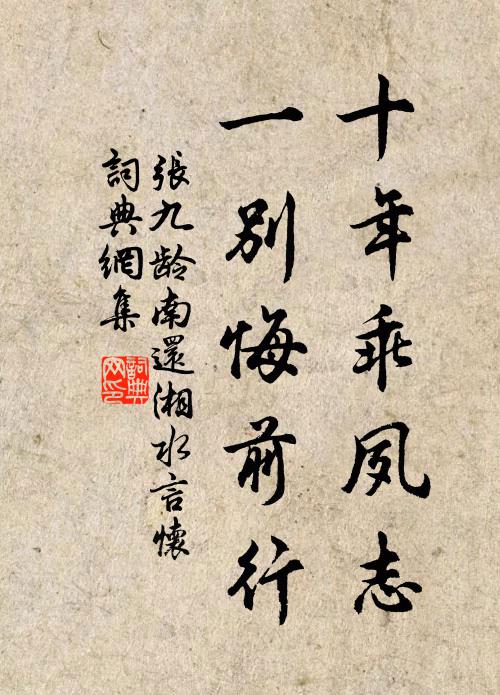 十年乖夙志
一別悔前行
張九龄南還湘水言懷
詞典網集
詞典
网印